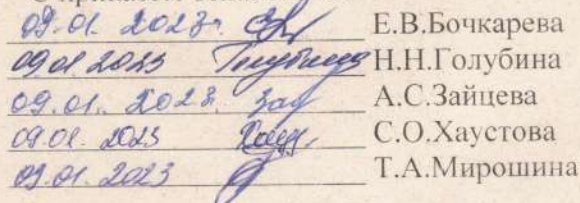 09.01.2023г. Е.В.Бочкарева
09.01.2023 Голубина Н.Н.Голубина
09.01.2023. Зай А.С.Зайцева
09.01.2023 Хауст С.О.Хаустова
09.01.2023 Т.А.Мирошина